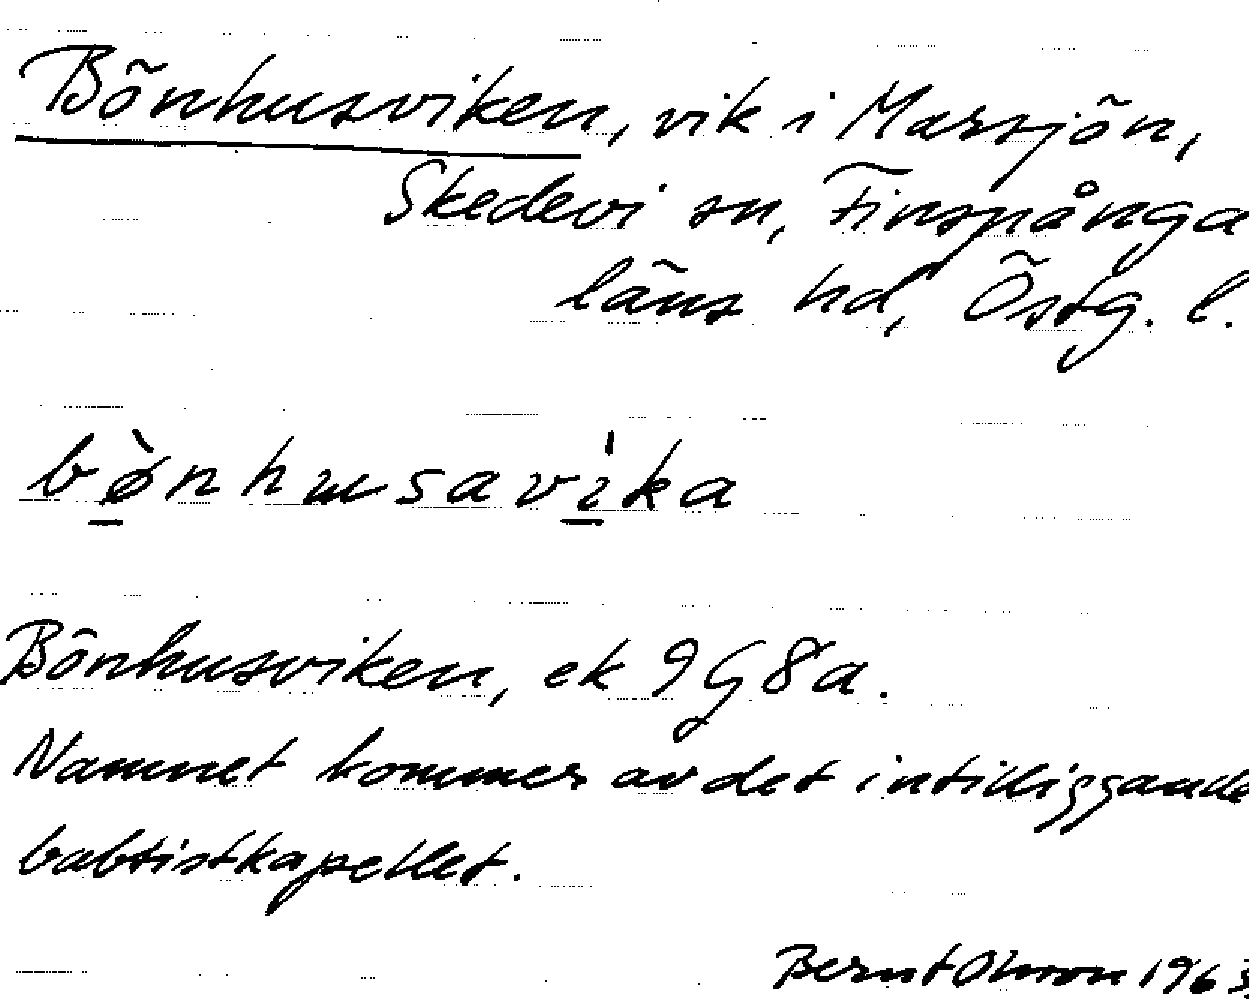 Bönhusviken, vik i Marsjön,
Skedevi sn, Finspånga
läns hd, Östg. l.
bø̀nhusavìka
Bönhusviken, ek 9G8a.
Namnet kommer av det intilliggande
babtistkapellet.
Bernt Olsson 1963